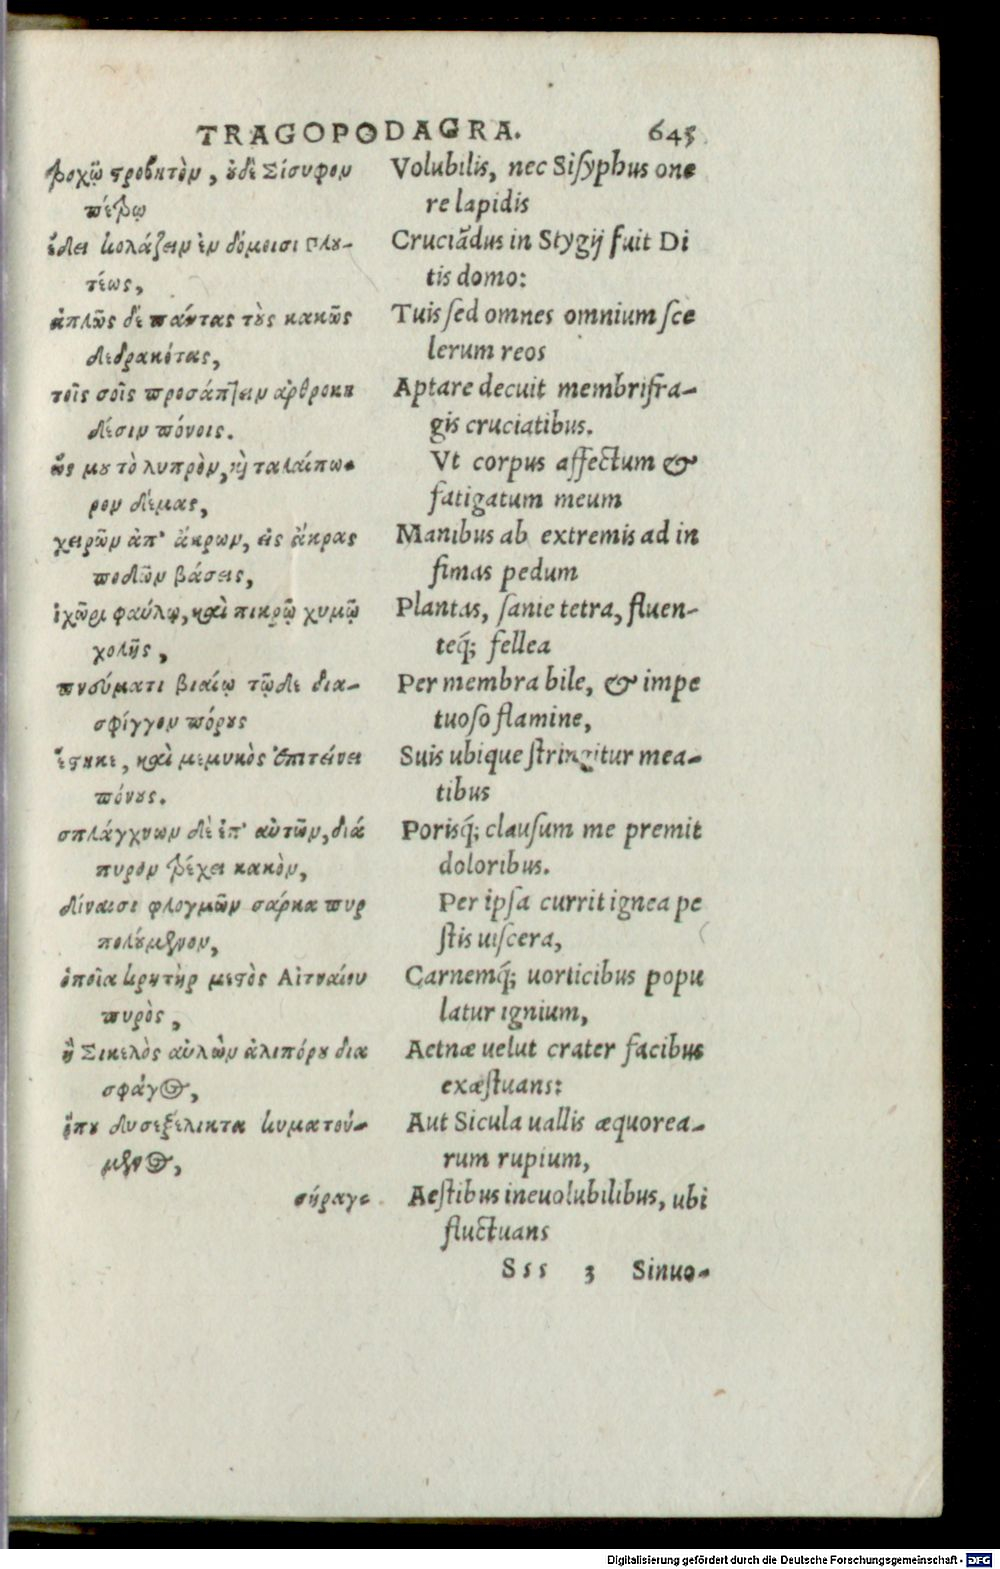 TRAGOPODAGRA. 645
τροχῷ τροβητὸν, ὐδὲ Σίσυφον
πέτρῳ
ἔδει κολάζειν ἐν δόμοισι πλου-
τέως,
ἁπλῶς δὲ πάντας τοὺς κακῶς
δεδρακότας,
τοῖς σοῖς προσάπτειν ἀρθροκη
δέσιν πόνοις.
ὥς μου τὸ λυπρὸν, καὶ ταλαίπω-
ρον δέμας,
χειρῶν ἀπ' ἄκρων, εἰς ἄκρας
ποδῶν βάσεις,
ἰχῶρι φαύλῳ, καὶ πικρῷ χυμῷ
χολῆς,
πνεύματι βιαίῳ τῷδε δια-
σφίγγον πόρους
ἕστηκε, καὶ μεμυκὸς ἐπιτείνει
πόνους.
σπλάγχνων δὲ ἐπ' αὐτῶν, διά
πυρον τρέχει κακὸν,
δίναισι φλογμῶν σάρκα πυρ
πολούμενον,
ὁποῖα κρητὴρ μεστὸς Αἰτναίου
πυρὸς,
ἢ Σικελὸς αὐλὼν ἁλιπόρου δια
σφάγος,
ὅπου δυσεξέλικτα κυματού-
μενος,
σήραγξ
Volubilis, nec Sisyphus one
re lapidis
Cruciādus in Stygij fuit Di
tis domo:
Tuis sed omnes omnium sce
lerum reos
Aptare decuit membrifra-
gis cruciatibus.
Vt corpus affectum &
fatigatum meum
Manibus ab extremis ad in
fimas pedum
Plantas, sanie tetra, fluen-
teq́; fellea
Per membra bile, & impe
tuoso flamine,
Suis ubique stringitur mea-
tibus
Porisq́; clausum me premit
doloribus.
Per ipsa currit ignea pe
stis uiscera,
Carnemq́; uorticibus popu
latur ignium,
Aetnæ uelut crater facibus
exæstuans:
Aut Sicula uallis æquorea-
rum rupium,
Aestibus ineuolubilibus, ubi
fluctuans
Sss 3 Sinuo-
Digitalisierung gefördert durch die Deutsche Forschungsgemeinschaft - DFG